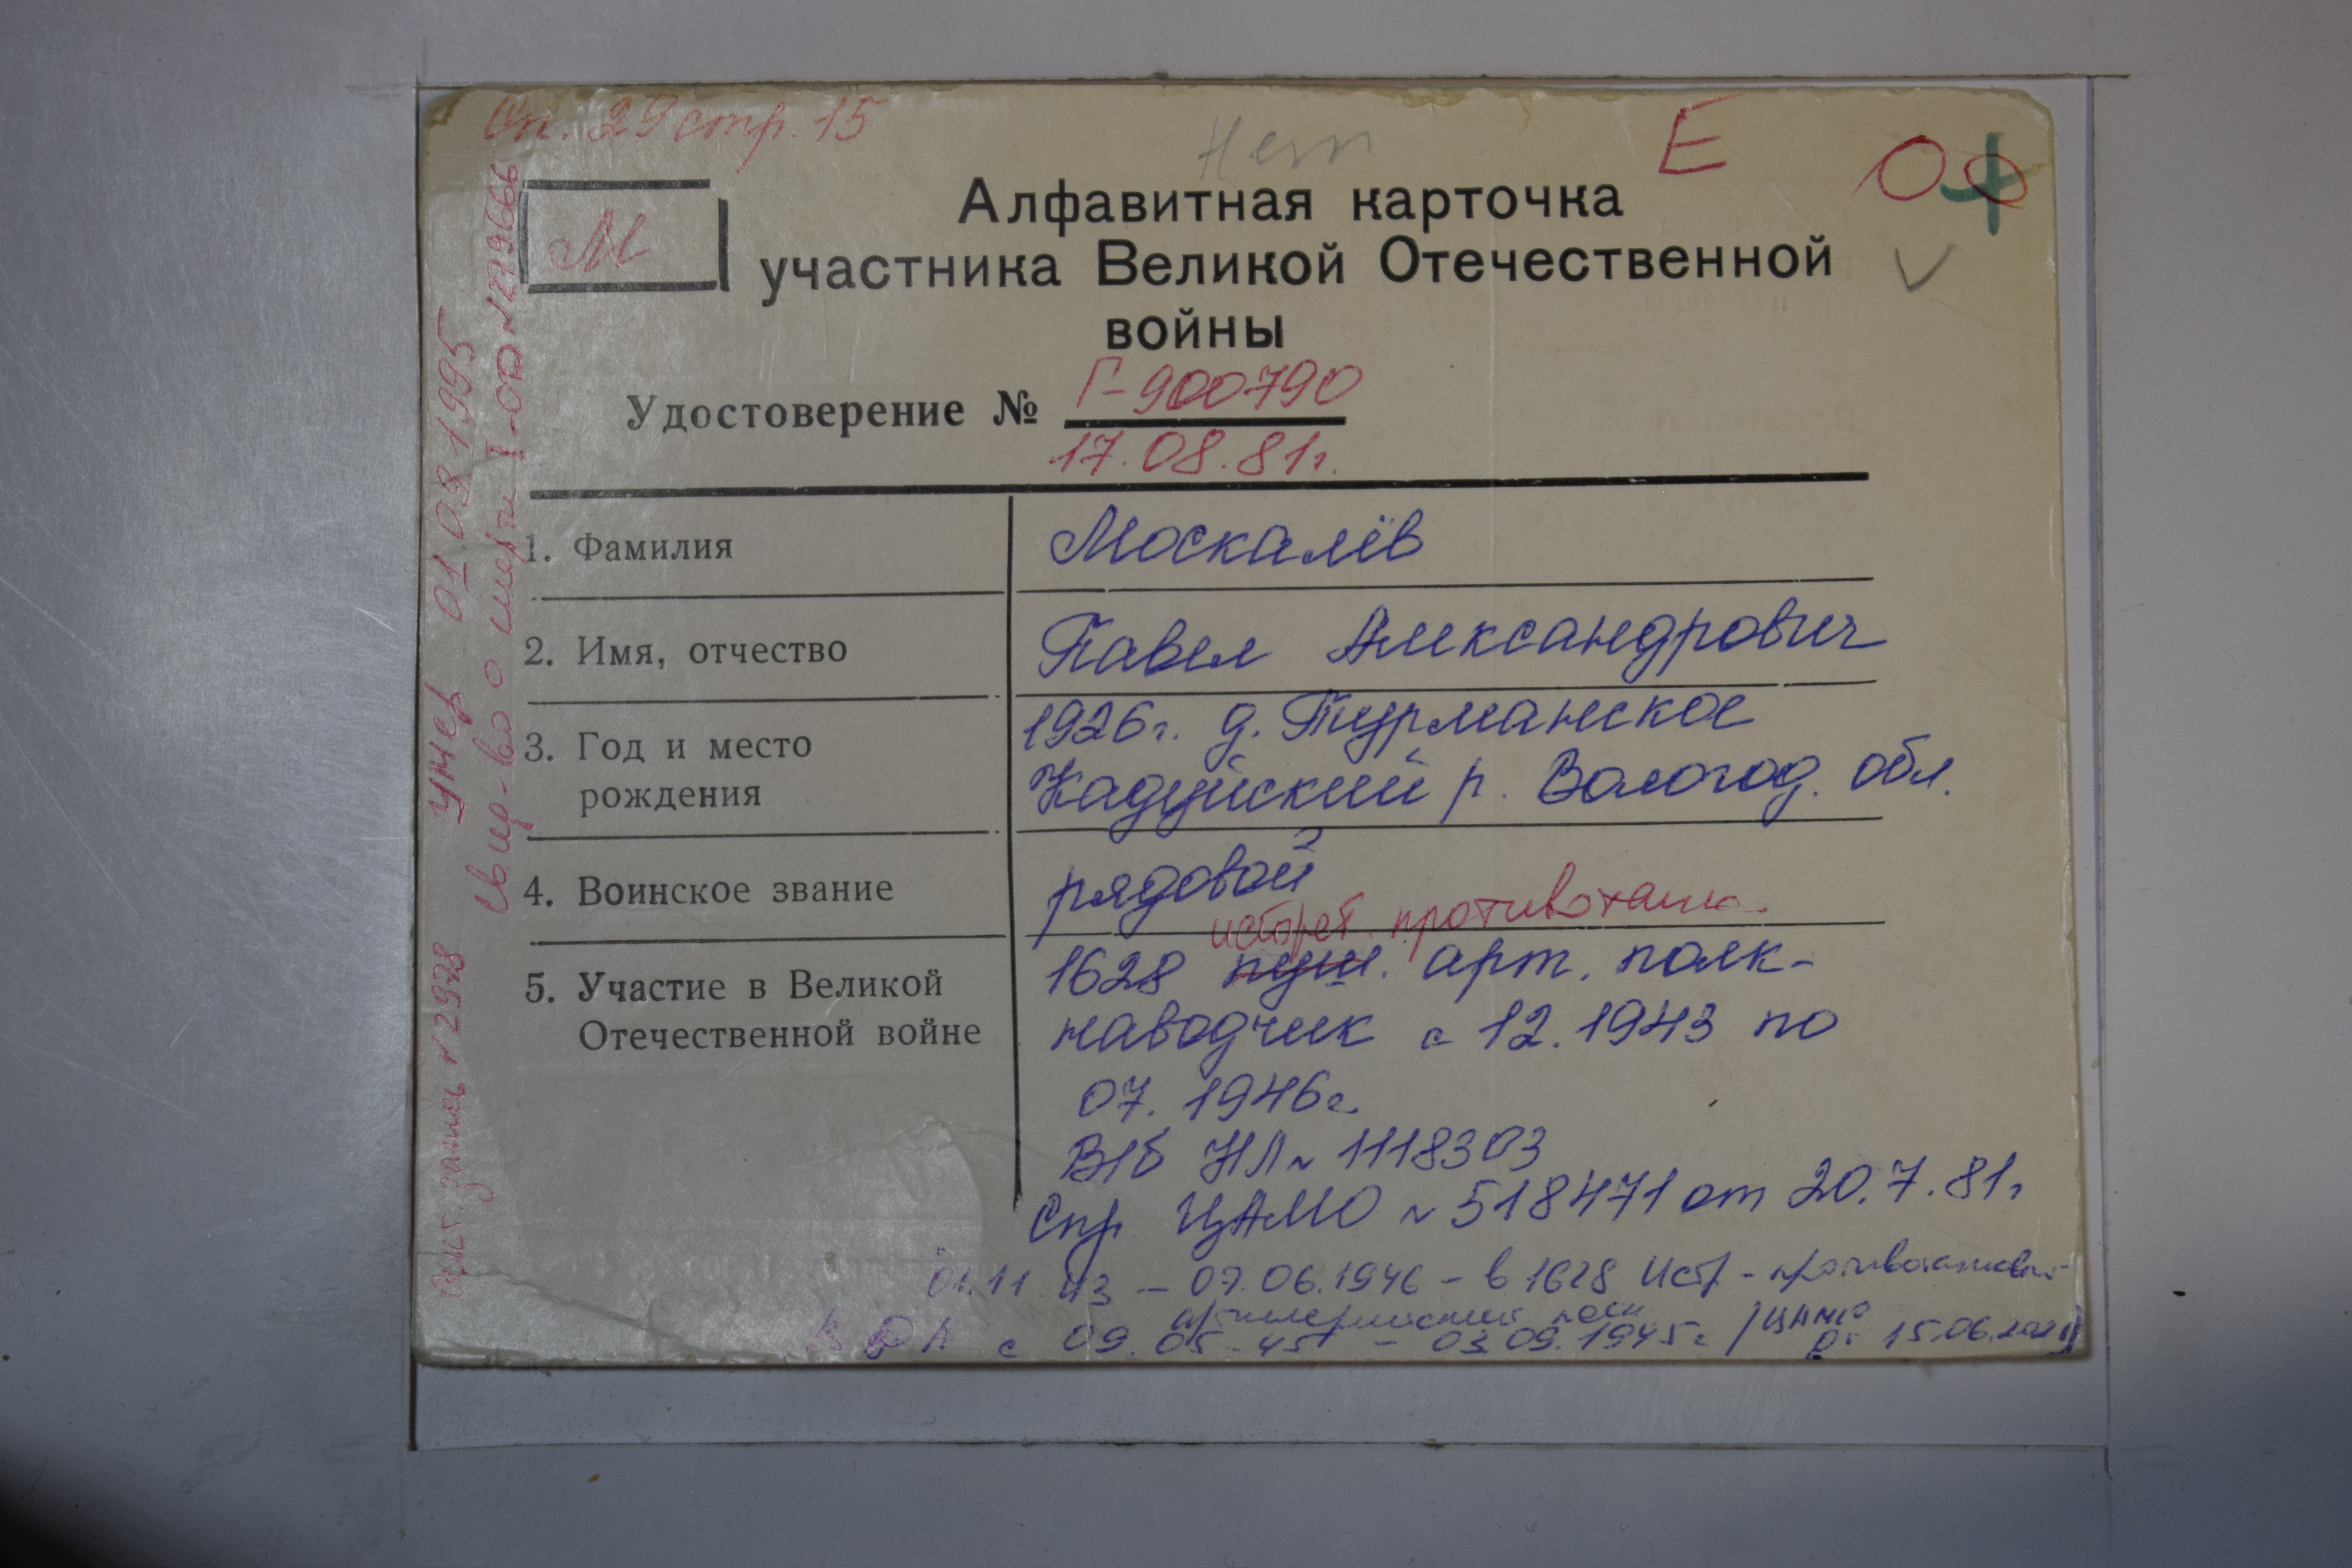 Оп. 29 стр. 15
Нет
Е
М
Алфавитная карточка
участника Великой Отечественной
войны
Удостоверение № Г-900790
17.08.81г.
1. Фамилия Москалёв
2. Имя, отчество Павел Александрович
3. Год и место рождения 1926г. д. Турманское
Кадуйский р. Вологод. обл.
4. Воинское звание рядовой
истреб. противотанк.
5. Участие в Великой Отечественной войне 1628 пуш. арт. полк-
наводчик с 12.1943 по
07.1946г.
В/б НЛ № 1118303
Спр ЦАМО № 518471 от 20.7.81г
01.11.43 — 07.06.1946 - в 1628 Истр - противотанковый
артиллерийский полк
в ДА с 09.05.45 - 03.09.1945г /ЦАМО
от 15.06.
умер 01.09.1995
Свид-во о смерти I-ОД № 279666
№ 2978